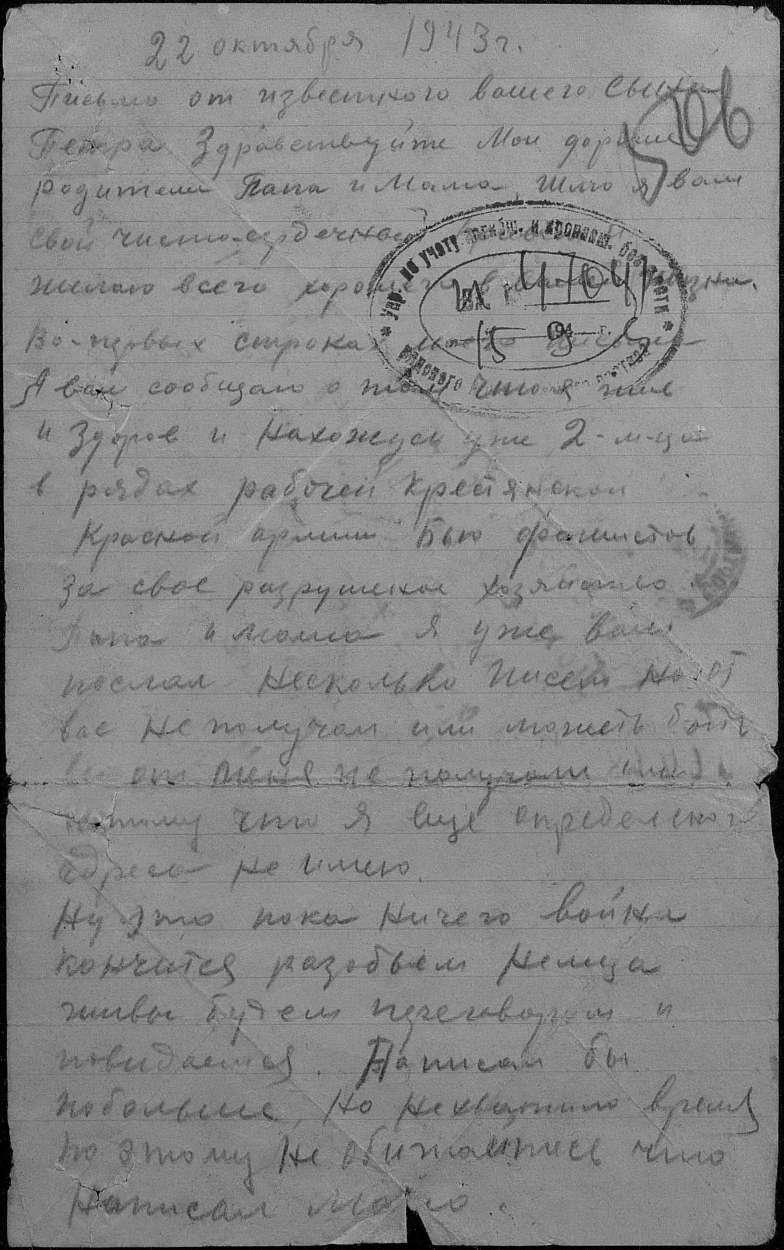 22 октября 1943 г.
Письмо от известного вашего Сына
Петра Здравствуйте Мои дорогие
родители Папа и Мама, Шлю я вам
свой чисто-сердечный
желаю всего хорошего в жизни.
Во-первых строках моего письма
Я вам сообщаю о том что я жив
и Здоров и Нахожусь уже 2-м-ца
в рядах рабочей крестянской
Красной армии Бью фашистов
За свое разрушеное хозяйство
Папа и мама я уже вам
послал Несколько Писем Но от
вас Не получал или можеть быть
вы от меня не получали
потому что я еще определеного
адреса не имею.
Ну это пока Ничего война
кончится разобьем Немца
живы будем переговорим и
повидаемся. Написал бы
побольше, Но Нехватило время
по этому Не обижайтесь что
Написал Мало.
506
* Упр. по учету погибш. и пропавш. без вести *
рядового
Вх. № 47041
15 9 194 г.